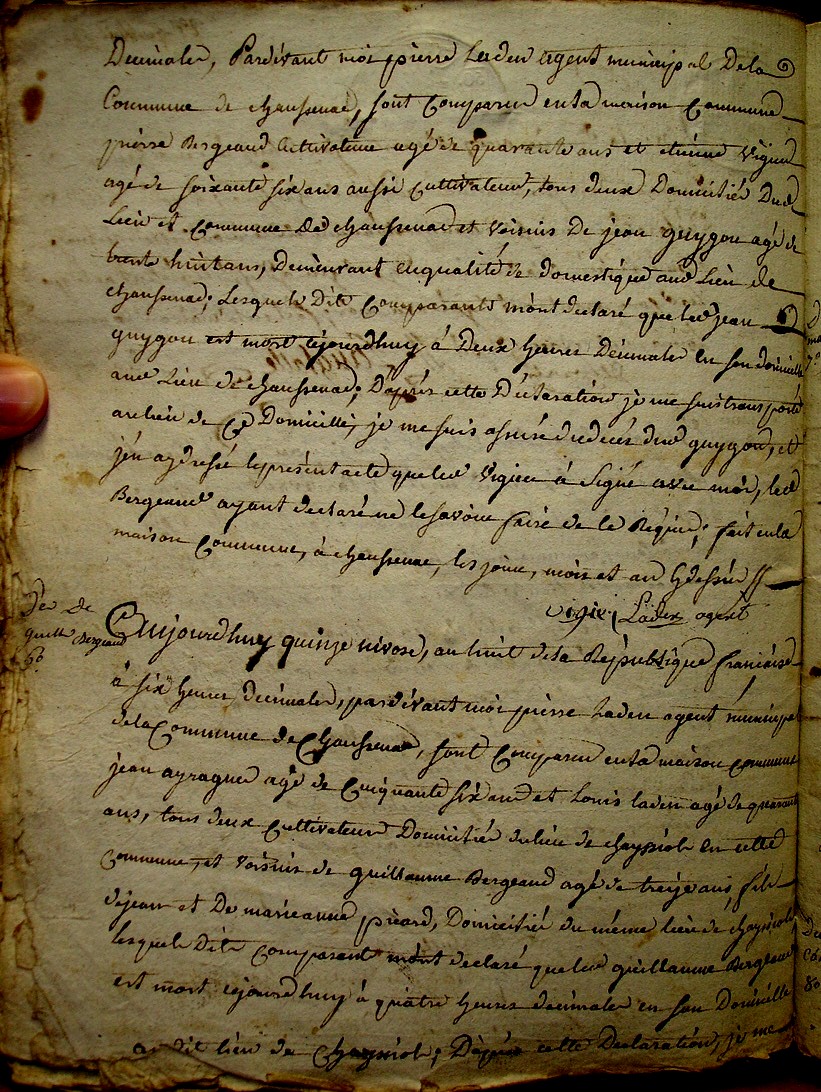 Decimales, Pardevant moi pierre Laden agent municipal De la
Commune de chaussenac, sont Comparus en la maison Commune
pierre Bergeaud Cultivateur agé de quarante ans et etienne Vigier
agé de soixante six ans aussi Cultivateur, tous deux Domiciliés Dud
Lieu et Commune de chaussenac et Voisins De jean guygou agé de
trente huit ans, Demeurant en qualité de domestique aud Lieu de
chaussenac; Lesquels Dits Comparants m'ont declaré que led jean
guygou est mort cejourdhuy à Deux heures Décimales en son domicille
aud Lieu de chaussenac; D'après cette Déclaration je me suis transporté
au lieu de Ce Domicille, je me suis assuré du decés dud guygou, et
j'en ay dressé le présent acte que led Vigier à Signé avec moi, led
Bergeaud ayant declaré ne le savoir faire de ce Requis; fait en la
maison Commune, à chaussenac, les jour, mois et an susdits //
vigier Laden agent
Des de
guille Bergeaud
Aujourdhuy quinze nivose, an huit de la République française
à six heures decimales, pardevant moi pierre Laden agent municipal
de la Commune de Chaussenac, sont Comparus en la maison commune
jean ayragues agé de Cinquante six ans et Louis laden agé de quarante
ans, tous deux Cultivateurs Domiciliés du lieu de chayssiol en cette
Commune, et Voisins de guillaume Bergeaud agé de treize ans, fils
de jean et De marieanne picard, Domicilié du même lieu de chayssiol
lesquels Dits Comparant m'ont declaré que led guillaume Bergeaud
est mort cejourdhuy à quatre heures decimales en son Domicille
au dit lieu de Chayssiol; D'après cette Declaration, je me